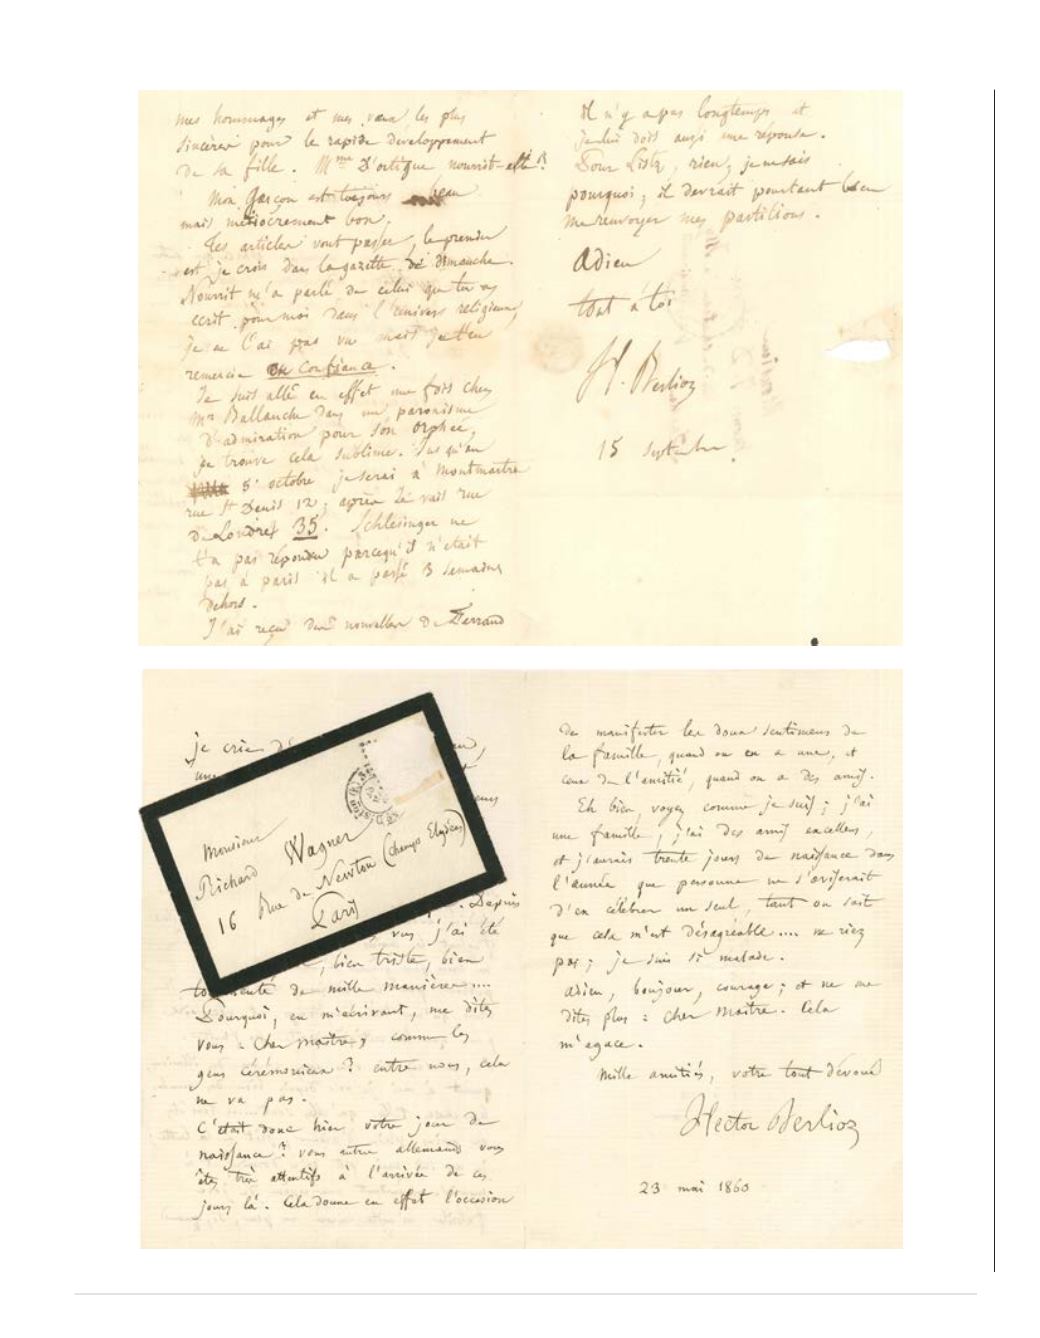 mes hommages et mes vœux les plus
sincères pour le rapide développement
de sa fille. Mme D'ortigue nourrit-elle ?
Mon Garçon est toujours beau
mais médiocrement bon.
Tes articles vont passer, le premier
est je crois dans la gazette de dimanche.
Nourrit m'a parlé de celui que tu as
ecrit pour moi dans l'univers religieux,
je ne l'ai pas vu mais je t'en
remercie en confiance.
Je suis allé en effet une fois chez
Mr Ballanche dans un paroxisme
d'admiration pour son orphée,
je trouve cela sublime. Jusqu'au
5 octobre je serai à Montmartre
rue St Denis 12; après je vais rue
de Londres 35. Schlesinger ne
t'a pas répondu parcequ'il n'était
pas à paris il a passé 3 semaines
dehors.
J'ai reçu des nouvelles de Ferrand
il n'y a pas longtemps et
je lui dois aussi une réponse.
Pour Listz, rien, je ne sais
pourquoi; il devrait pourtant bien
me renvoyer mes partitions.
Adieu
tout à toi
H. Berlioz
15 Septembre.
je crie
Monsieur
Richard Wagner
16 Rue de Newton (Champs Elysées)
Paris
Depuis
vous j'ai été
, bien triste, bien
tourmenté de mille manières....
Pourquoi, en m'écrivant, me dites
vous : cher maître, comme les
gens cérémonieux ? entre nous, cela
ne va pas.
C'était donc hier votre jour de
naissance ? vous autres allemands vous
êtes très attentifs à l'arrivée de ces
jours là. Cela donne en effet l'occasion
de manifester les doux sentimens de
la famille, quand on en a une, et
ceux de l'amitié, quand on a des amis.
Eh bien, voyez comme je suis; j'ai
une famille, j'ai des amis excellens,
et j'aurais trente jours de naissance dans
l'année que personne ne s'aviserait
d'en célébrer un seul, tant on sait
que cela m'est désagréable.... ne riez
pas; je suis si malade.
Adieu, bonjour, courage; et ne me
dites plus : cher maître. Cela
m'agace.
Mille amitiés, votre tout dévoué
Hector Berlioz
23 mai 1860